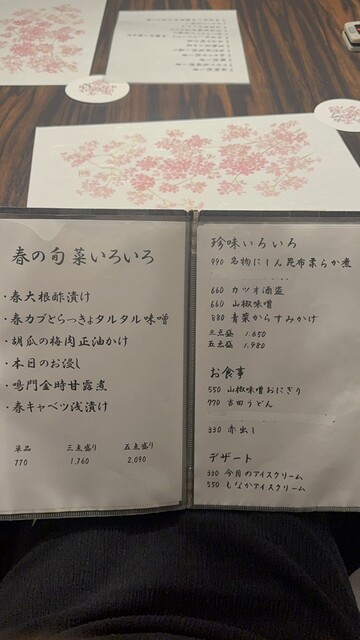 春の旬菜いろいろ
・春大根酢漬け
・春カブとらっきょタルタル味噌
・胡瓜の梅肉正油かけ
・本日のお浸し
・鳴門金時甘露煮
・春キャベツ浅漬け
単品 三点盛り 五点盛り
770 1,760 2,090
珍味いろいろ
990 名物にしん昆布柔らか煮
660 カツオ酒盗
660 山椒味噌
880 青菜からすみかけ
三点盛 1,650
五点盛 1,980
お食事
550 山椒味噌おにぎり
770 吉田うどん
330 赤出し
デザート
330 今月のアイスクリーム
550 もなかアイスクリーム